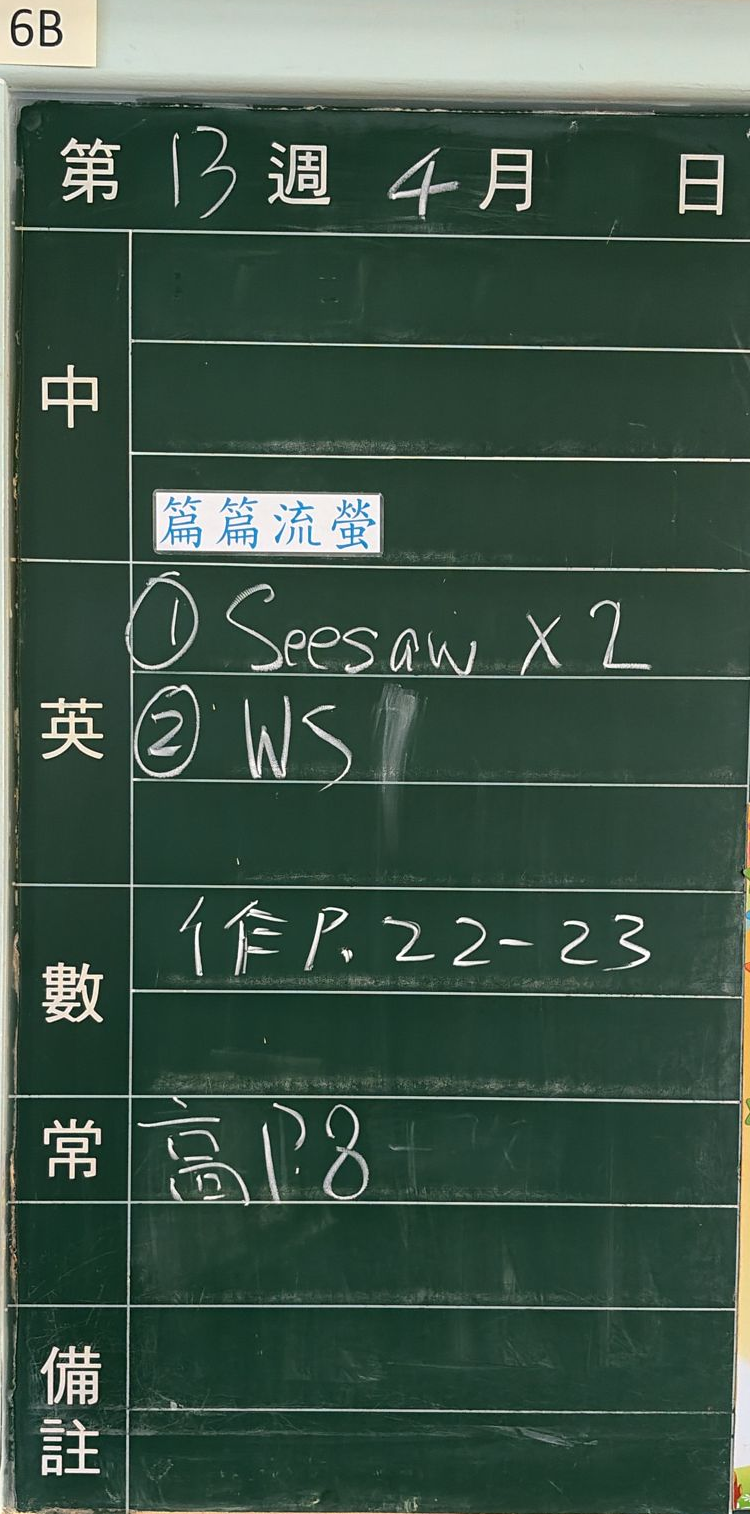 6B
第 13 週 4 月 日
中
篇篇流螢
英
① Seesaw x 2
② WS
數
作 P. 22-23
常
高 P.8
備註